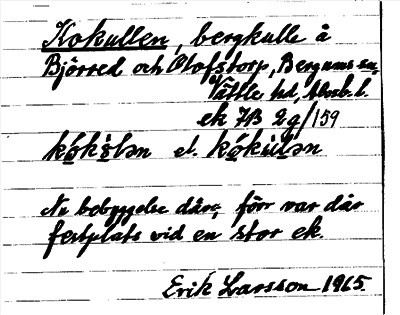 Kokullen, bergkulle å
Björred och Olofstorp, Bergums sn,
Vättle hd, Älvsb. l.
ek 7B 2g/159
kókòlən el. kókùlən
Nu bebyggelse där, förr var där
festplats vid en stor ek.
Erik Larsson 1965.